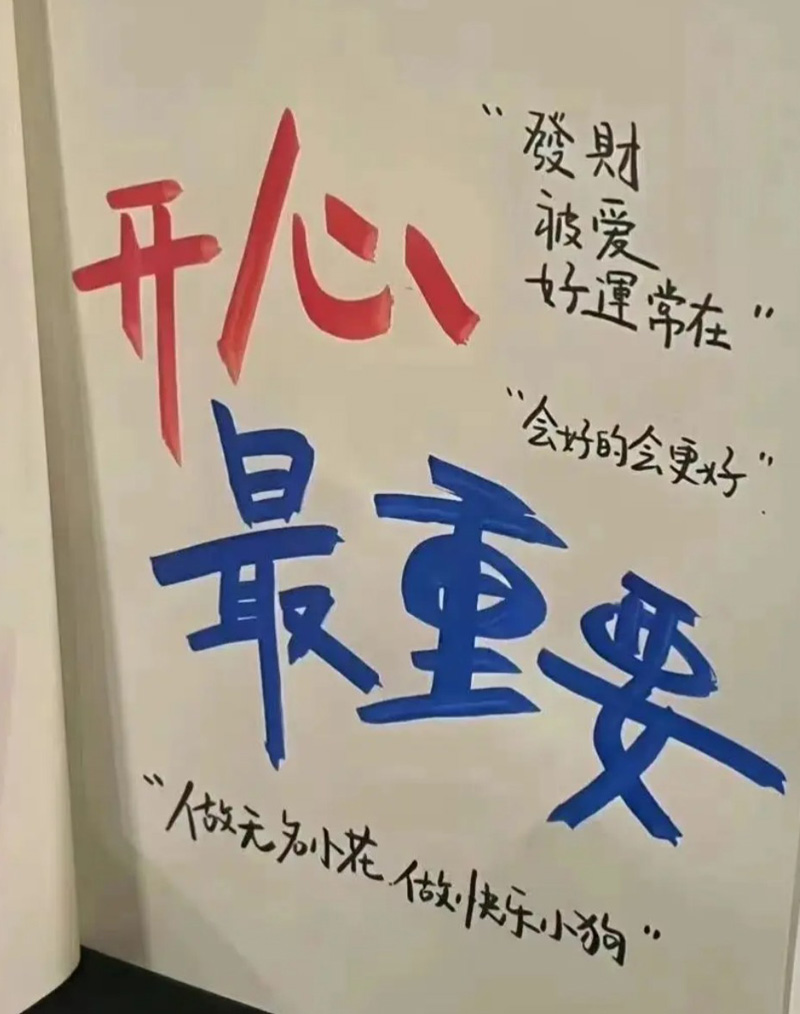 开心
最重要
“發財
被爱
好運常在”
“会好的会更好”
“做无名小花.做快乐小狗”